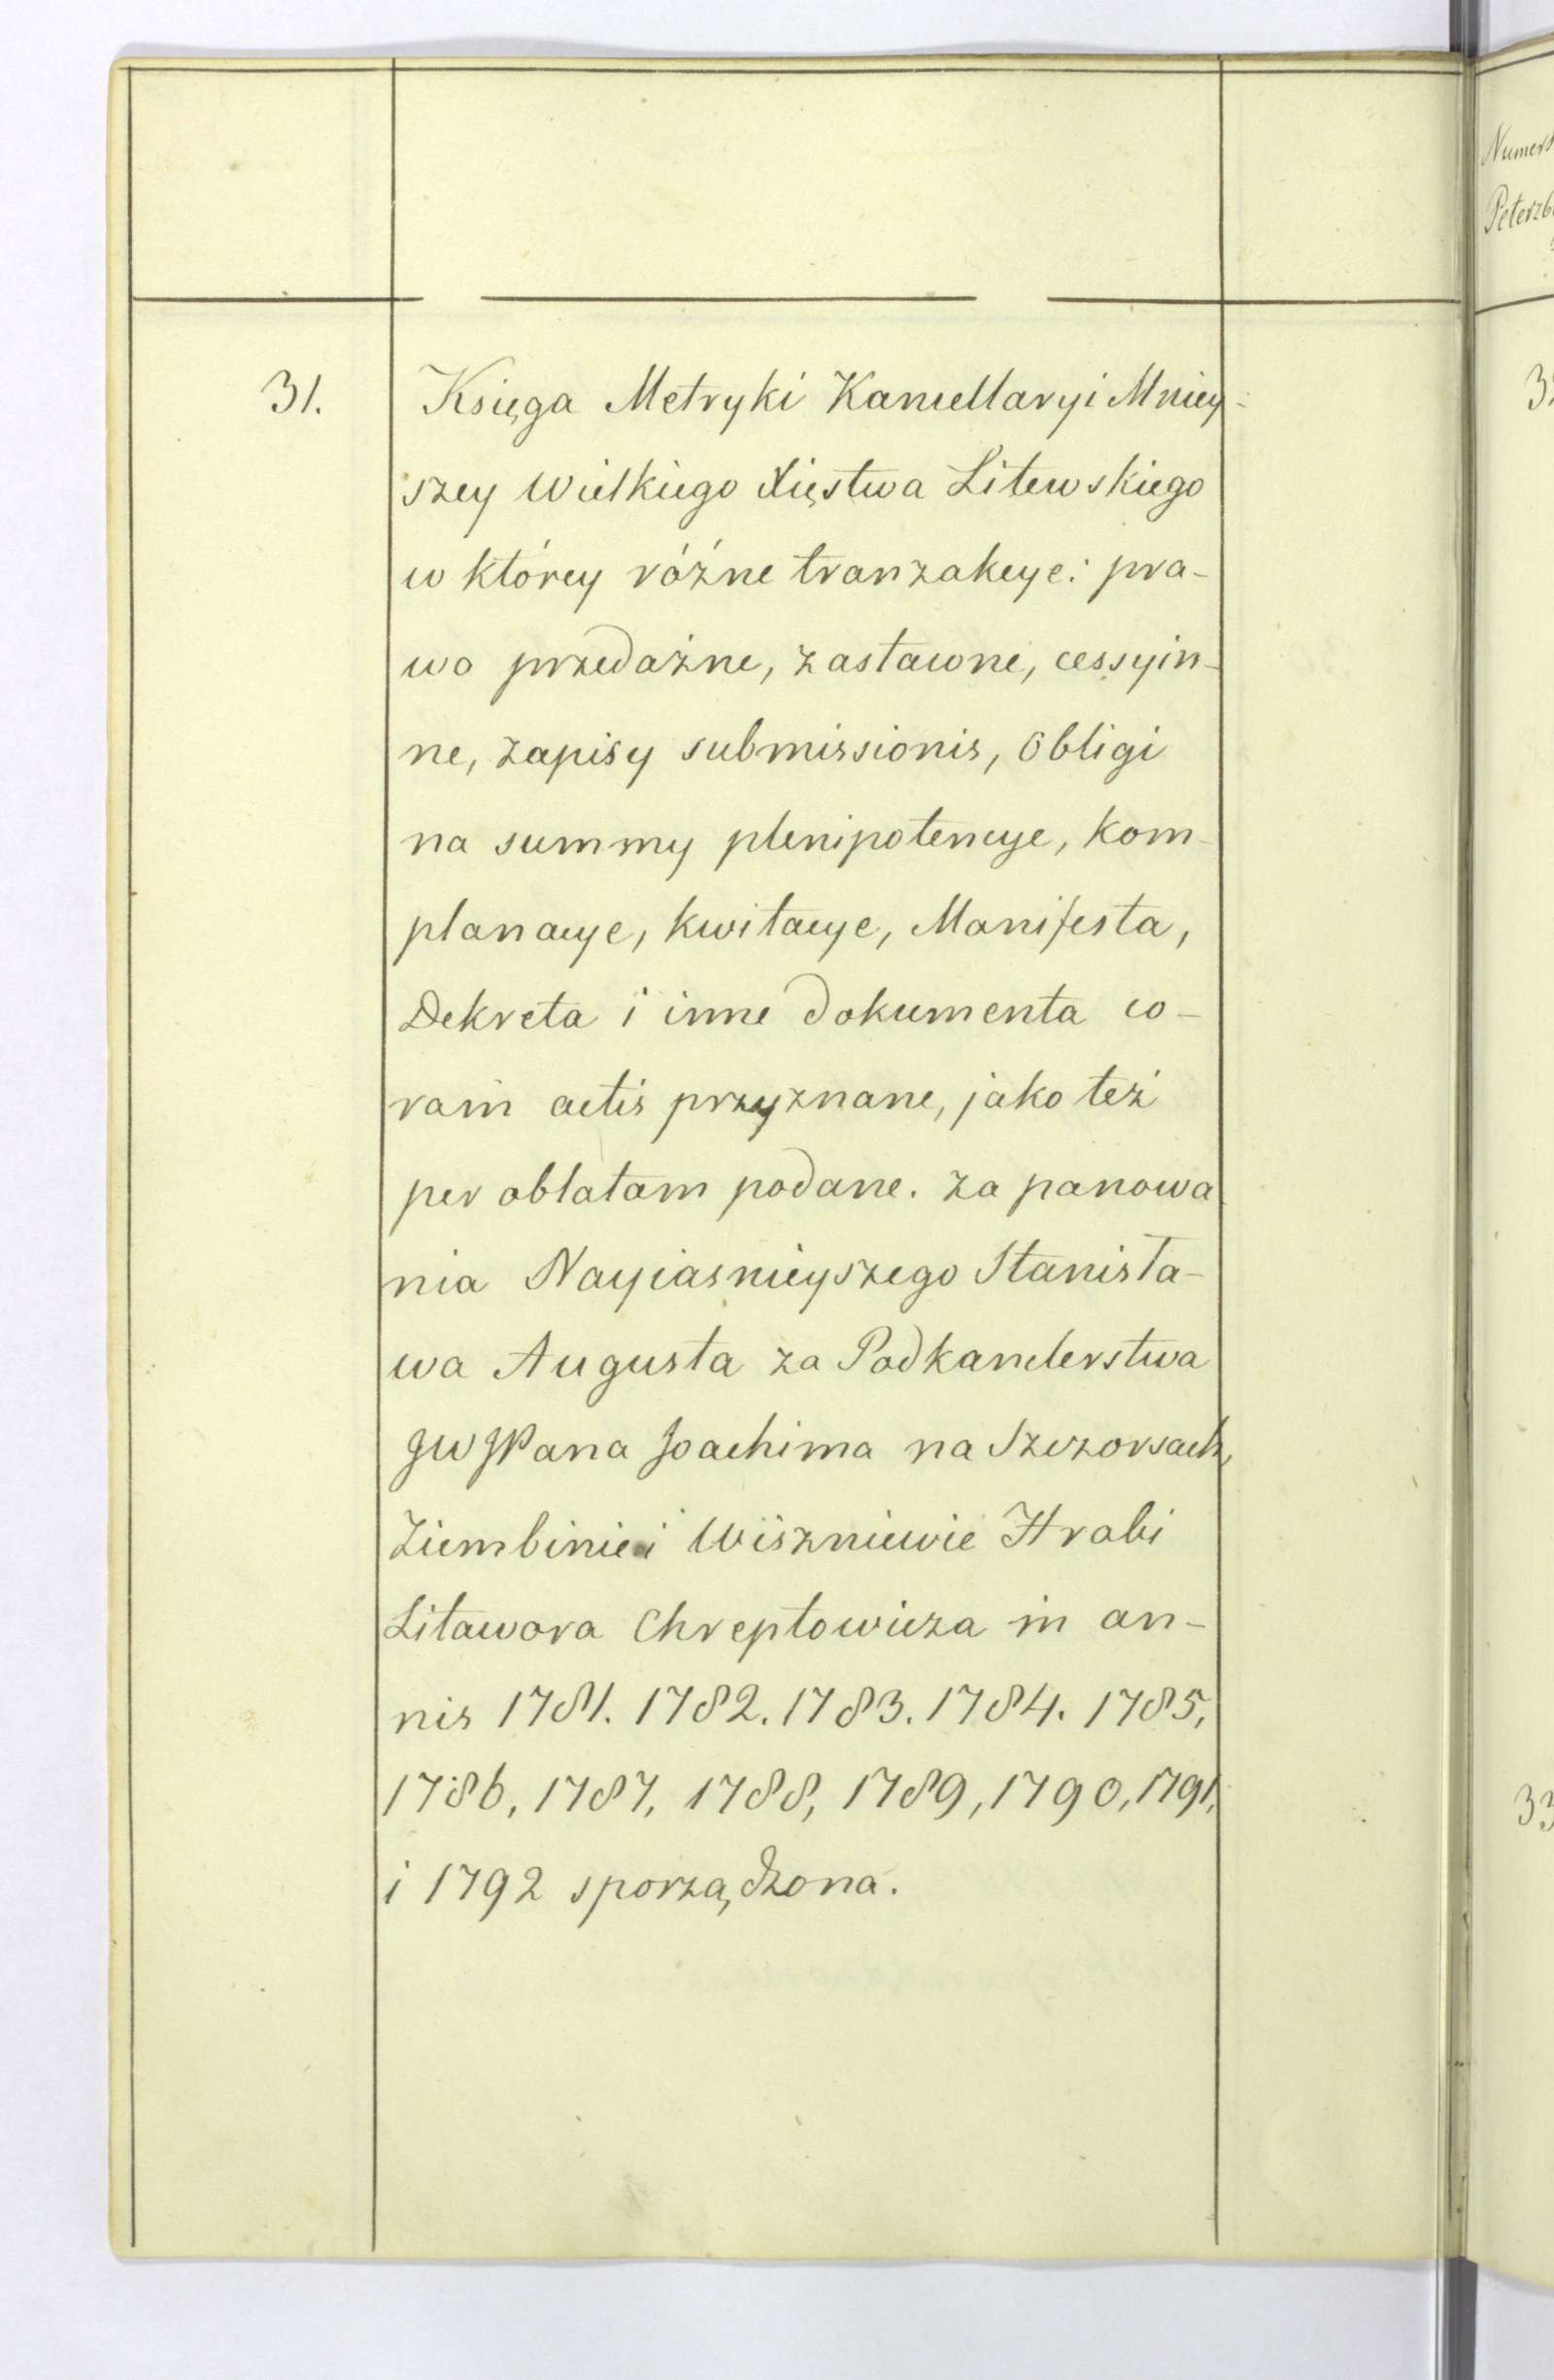 31. Księga Metryki Kancellaryi Mniey-
szey Wielkiego Xięstwa Litewskiego
w którey różne tranzakcye: pra-
wo przedażne, zastawne, cessyin-
ne, zapisy submissionis, obligi
na summy plenipotencye, kom-
planacye, kwitacye, Manifesta,
Dekreta i inne dokumenta co-
ram actis przyznane, jako też
per oblatam podane. Za panowa
nia Nayiasnieyszego Stanisła-
wa Augusta za Podkanclerstwa
JW JPana Joachima na Szczorsach,
Ziembinie i Wiszniewie Hrabi
Litawora Chreptowicza in an-
nis 1781. 1782. 1783. 1784. 1785,
1786, 1787, 1788, 1789, 1790, 1791,
i 1792 sporządzona.
Numer
Peterzb
3
33